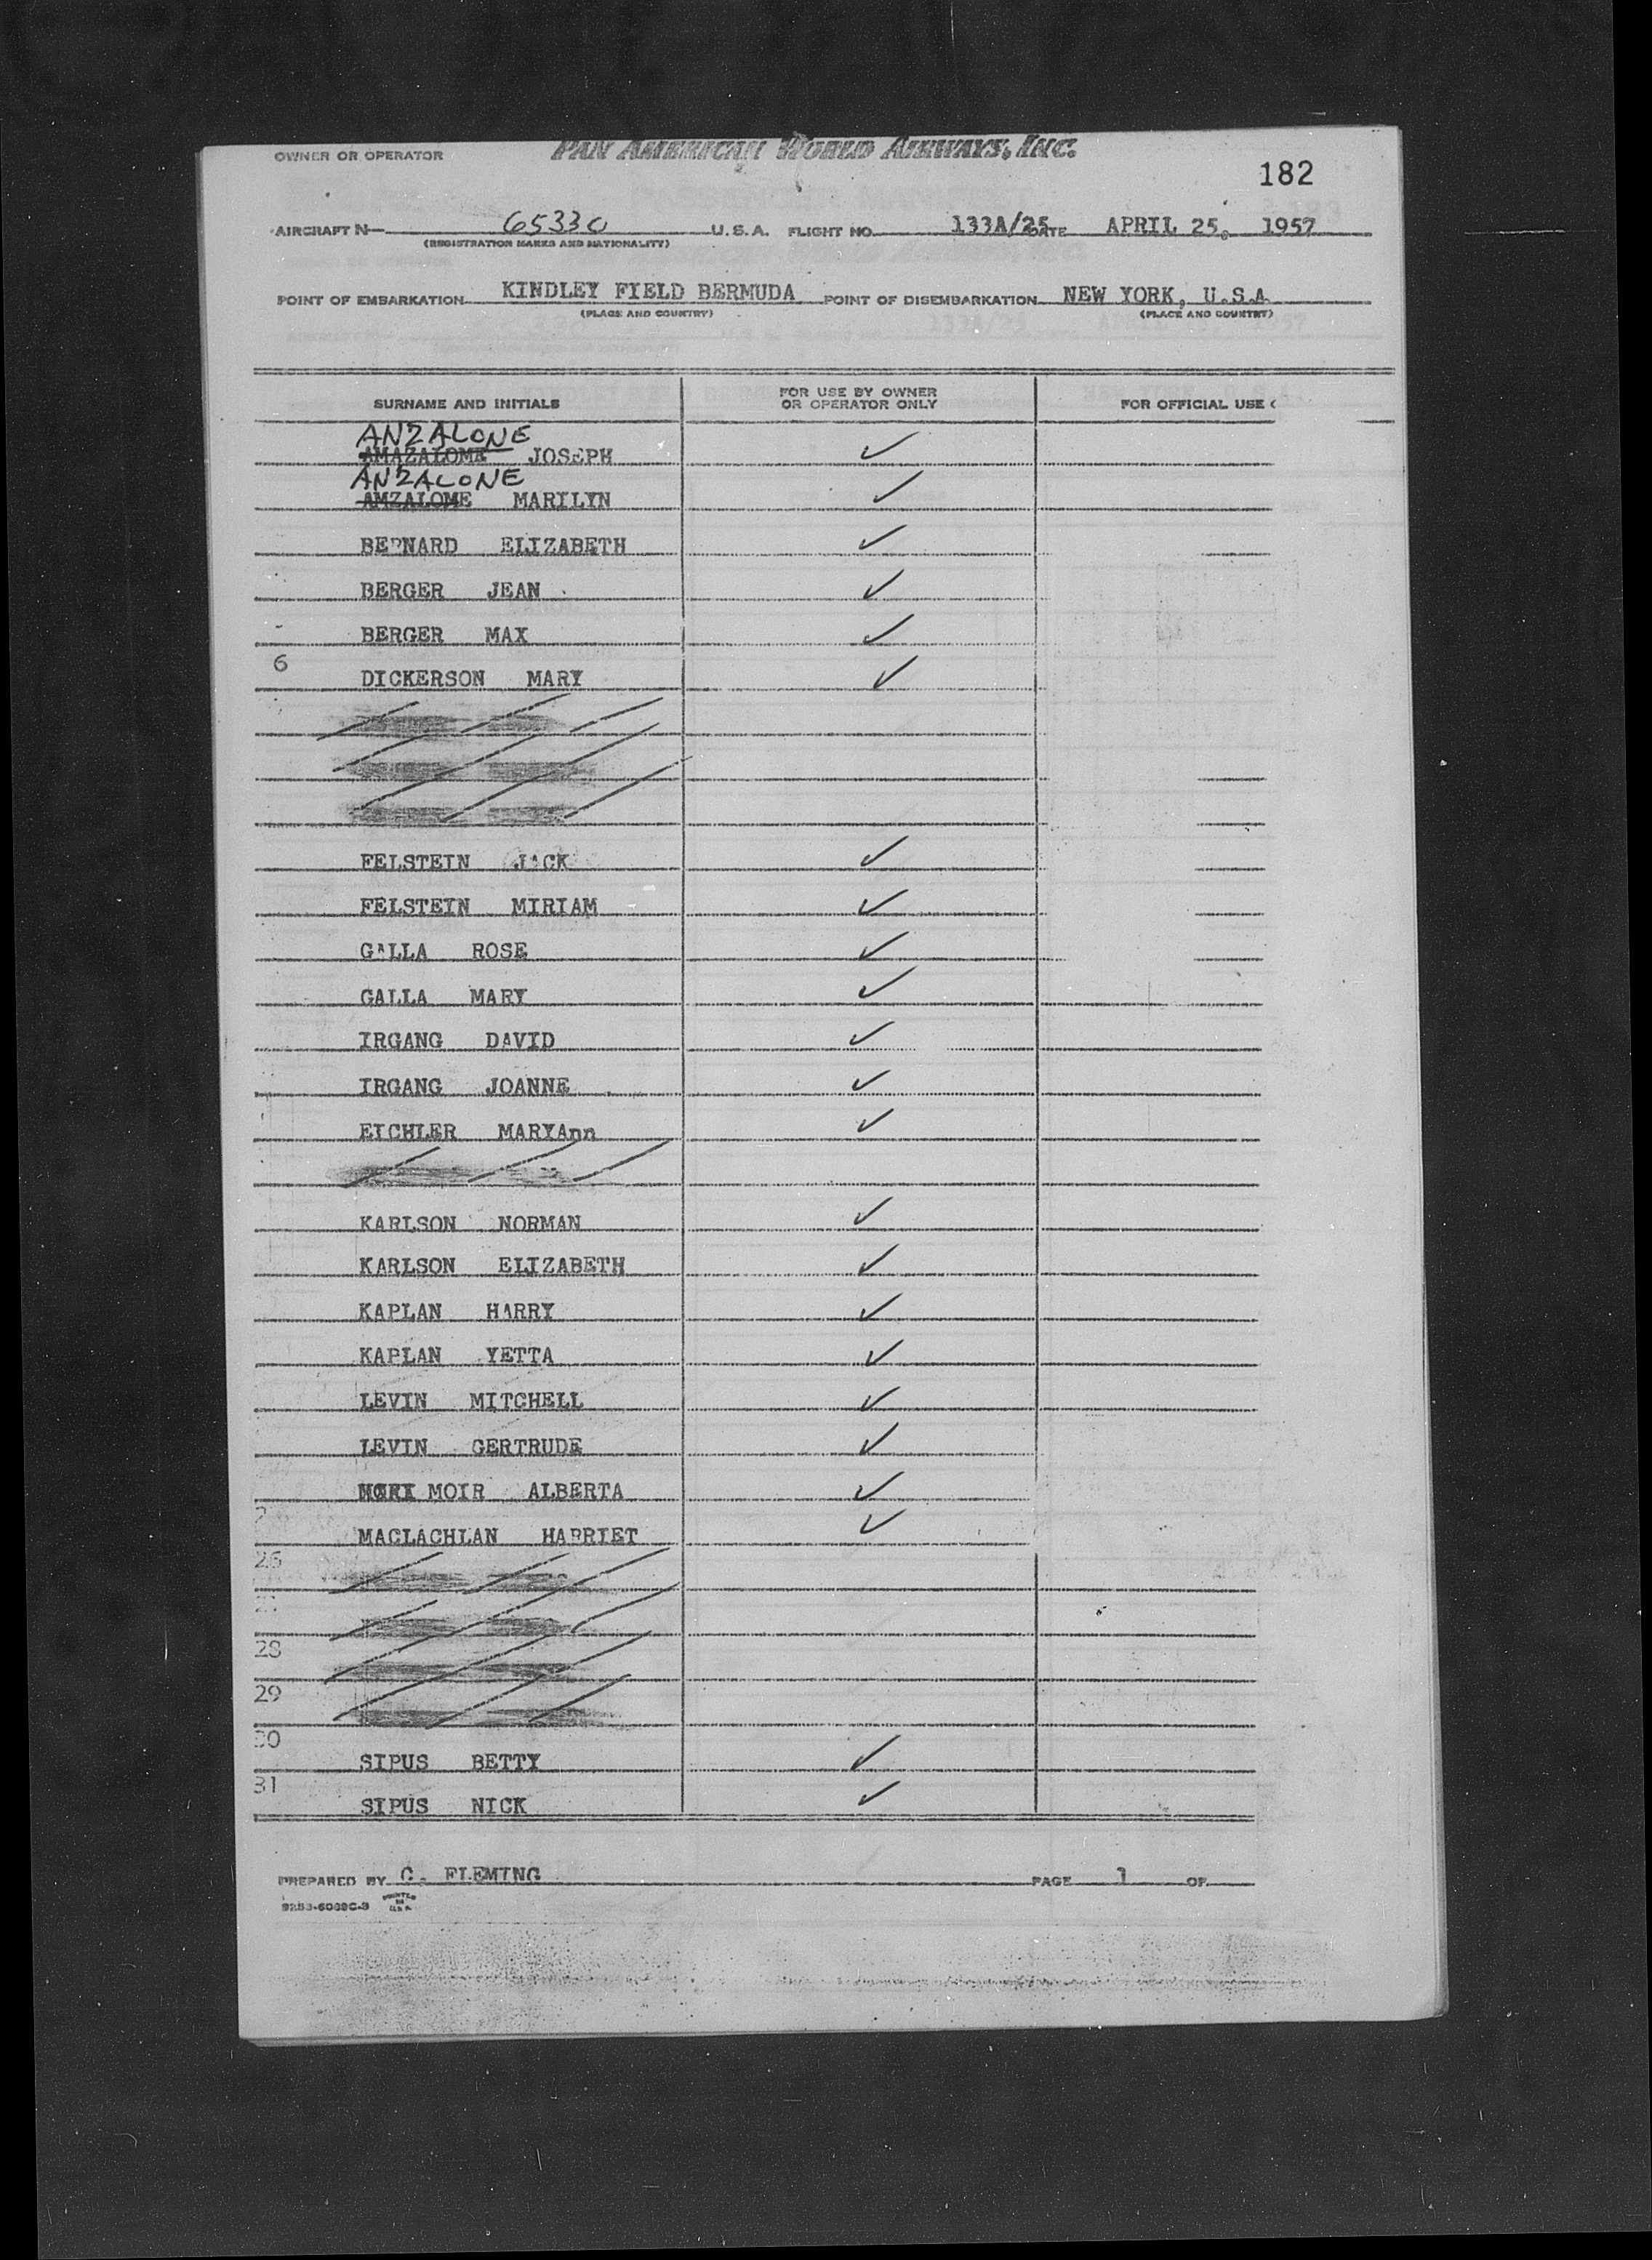 OWNER OR OPERATOR PAN AMERICAN WORLD AIRWAYS, INC.
182
AIRCRAFT N— 65330 U. S. A. FLIGHT NO. 133A/25 DATE APRIL 25, 1957
(REGISTRATION MARKS AND NATIONALITY)
POINT OF EMBARKATION KINDLEY FIELD BERMUDA POINT OF DISEMBARKATION NEW YORK, U.S.A.
(PLACE AND COUNTRY) (PLACE AND COUNTRY)
SURNAME AND INITIALS FOR USE BY OWNER OR OPERATOR ONLY FOR OFFICIAL USE
ANZALONE
AMAZALOME JOSEPH ✓
ANZALONE
AMZALOME MARILYN ✓
BERNARD ELIZABETH ✓
BERGER JEAN ✓
BERGER MAX ✓
6
DICKERSON MARY ✓
FELSTEIN JACK ✓
FELSTEIN MIRIAM ✓
GALLA ROSE ✓
GALLA MARY ✓
IRGANG DAVID ✓
IRGANG JOANNE ✓
EICHLER MARYAnn ✓
KARLSON NORMAN ✓
KARLSON ELIZABETH ✓
KAPLAN HARRY ✓
KAPLAN YETTA ✓
LEVIN MITCHELL ✓
LEVIN GERTRUDE ✓
MOIR ALBERTA ✓
MACLACHLAN HARRIET ✓
26
28
29
30
SIPUS BETTY ✓
31
SIPUS NICK ✓
PREPARED BY C. FLEMING PAGE 1 OF
PRINTED IN U.S.A.